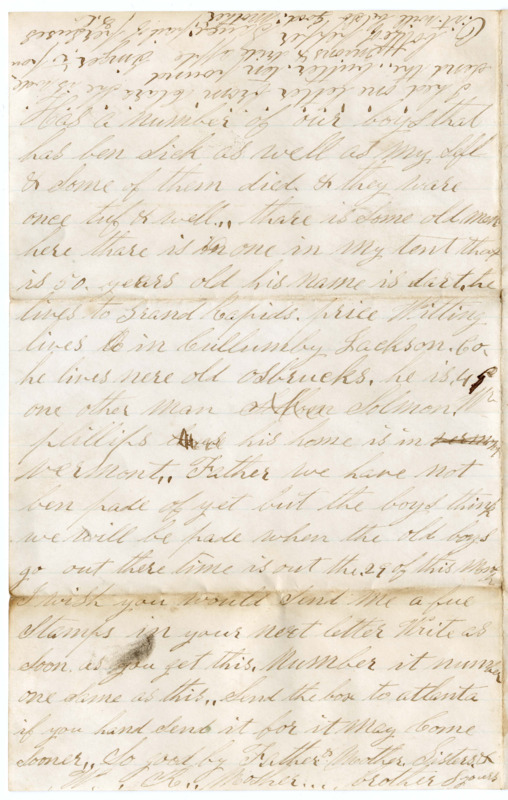 Has a number of our boys that
has ben sick as well as my self
& some of them died & they ware
once tuf & well,, thare is some old men
here thare is one in my tent that
is 50. years old his name is dart. he
lives to Grand Rapids. price Willing
lives in Cullumby Jackson. Co.
he lives nere old Osbrucks. he is 45
one other man Solmon
phillips his home is in
vermont,, Father we have not
ben pade of yet but the boys think
we will be pade when the old boys
go out there time is out the 29 of this Month
I wish you would send me a fue
stamps in your next letter Write as
soon as you get this. Number it number
one same as this,, send the box to atlanta
if you hand sent it for it may Come
sooner,, So good by Father Mother Sisters &
brother
I got one letter from
send the butter in round